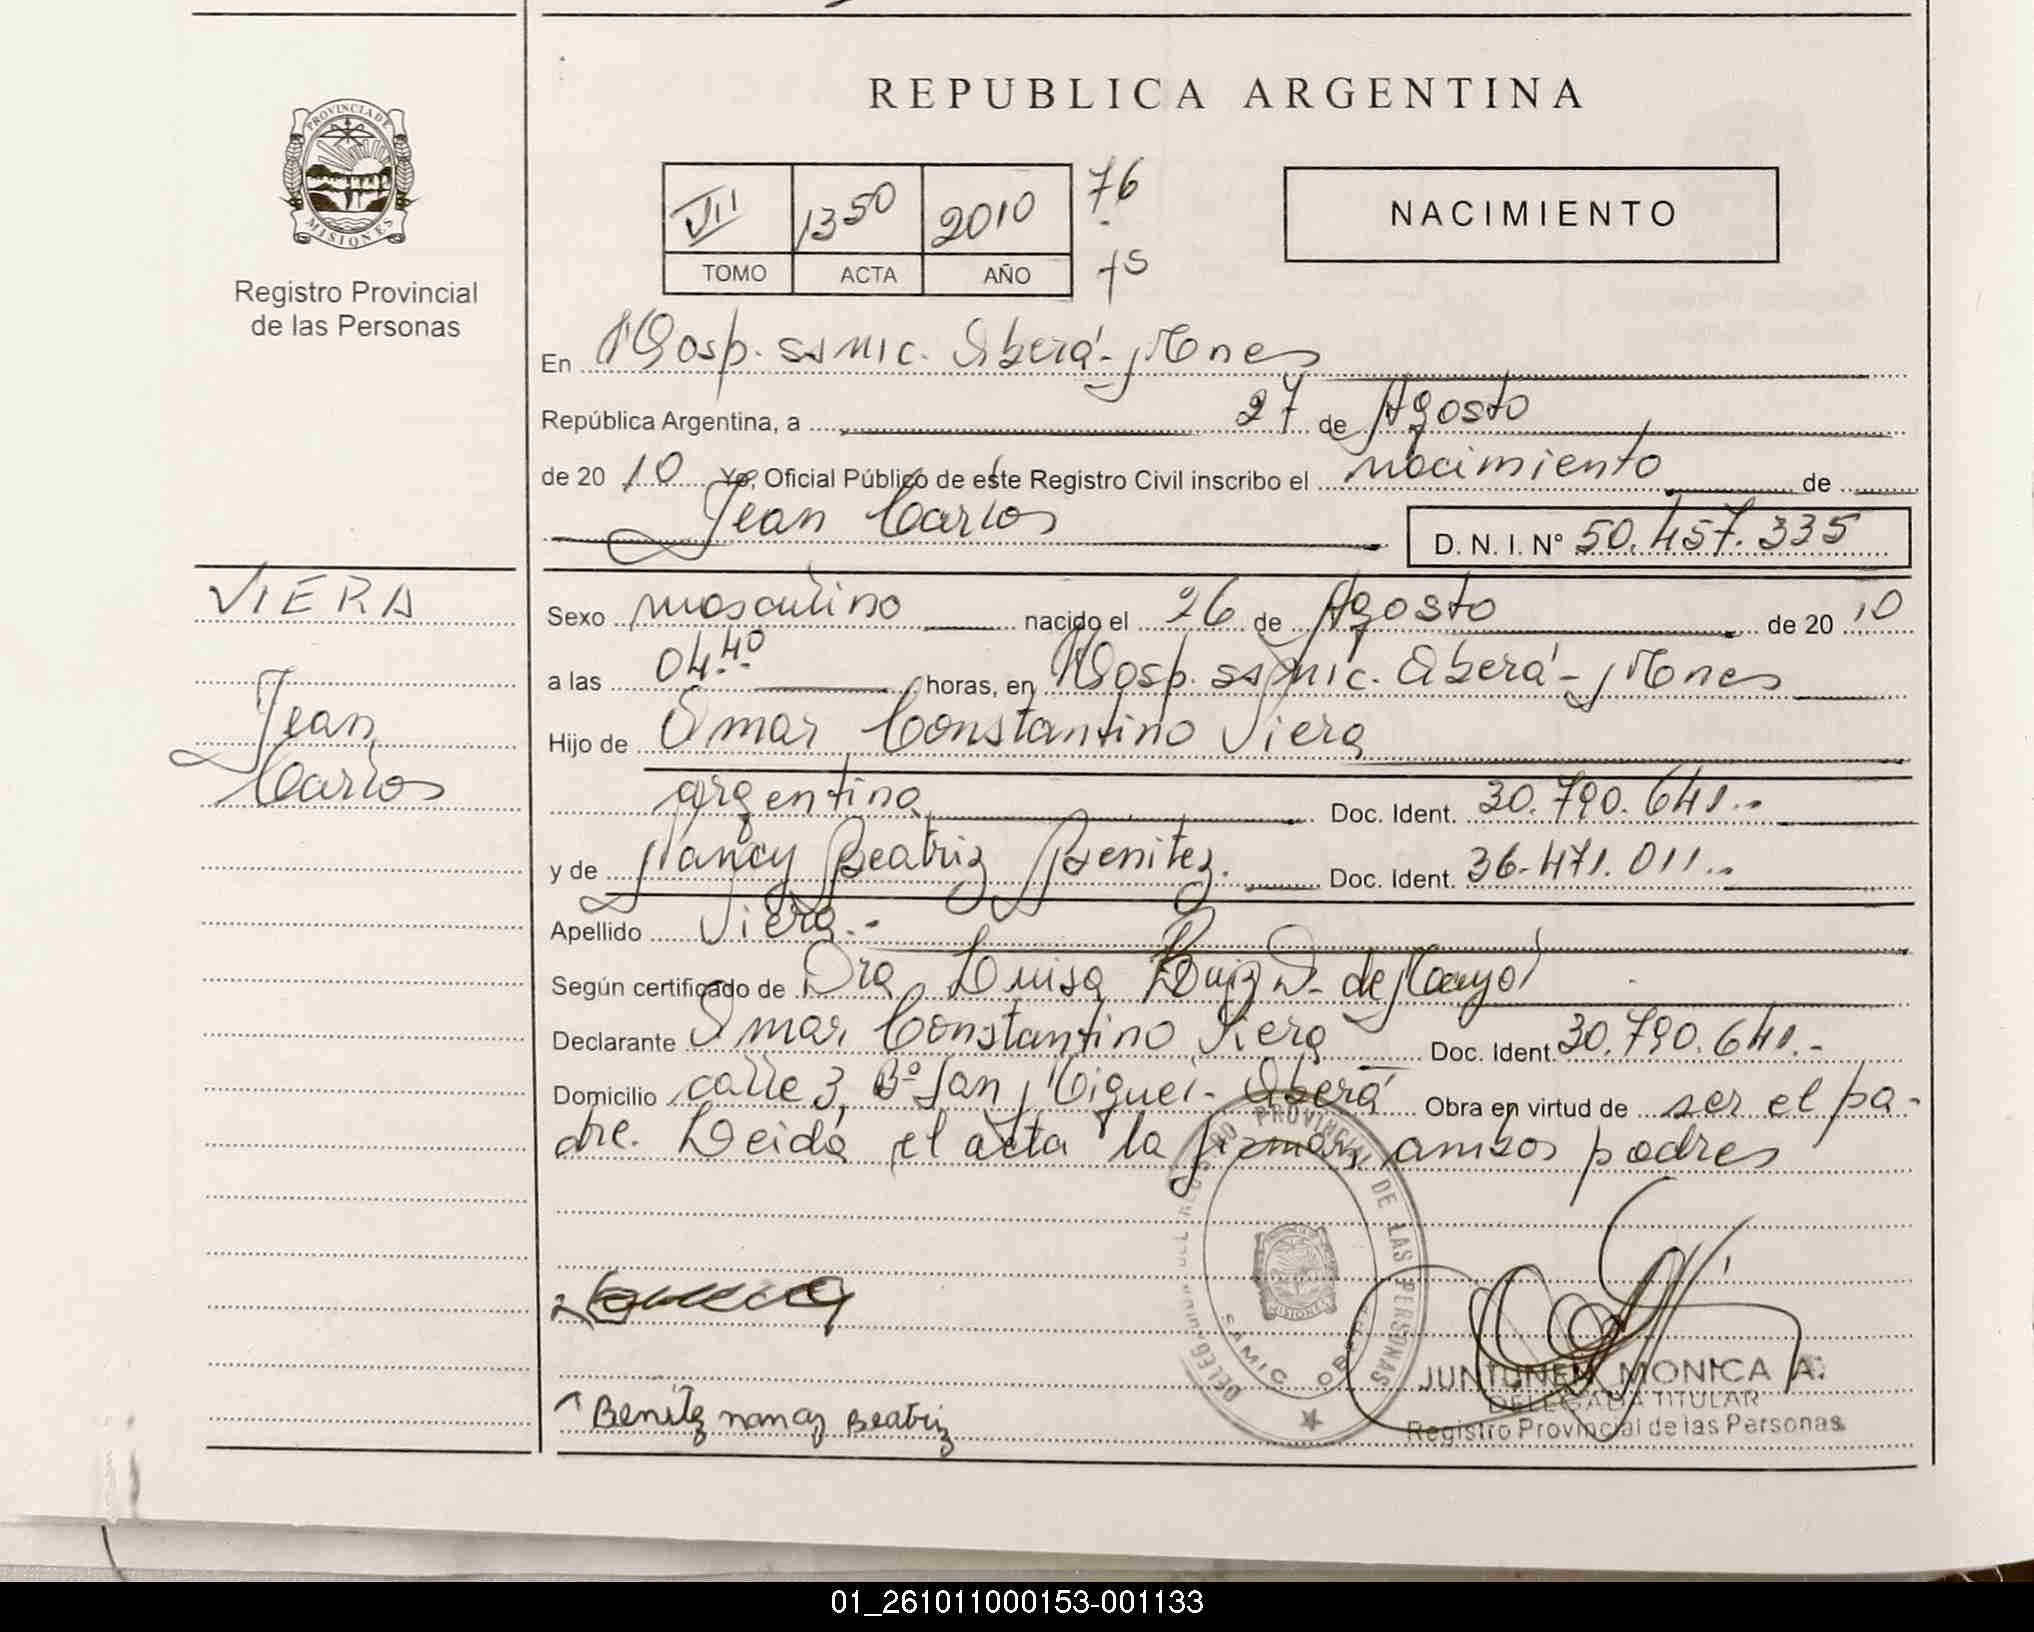 REPUBLICA ARGENTINA
PROVINCIA DE
MISIONES
Registro Provincial
de las Personas
VII 1350 2010 76
TOMO ACTA AÑO 75
NACIMIENTO
En Hosp. ssmic. Oberá - Mones
República Argentina, a 27 de Agosto
de 20 10 Yo, Oficial Público de este Registro Civil inscribo el nacimiento de
Jean Carlos
D. N. I. N° 50.457.335
VIERA
Jean
Carlos
Sexo masculino nacido el 26 de Agosto de 20 10
a las 04.40 horas, en Hosp. ssmic. Oberá - Mones
Hijo de Omar Constantino Viera
argentino Doc. Ident. 30.790.641.-
y de Nancy Beatriz Benitez. Doc. Ident. 36.471.011.-
Apellido Viera.-
Según certificado de Dra Luisa Ruiz D. de
Declarante Omar Constantino Viera Doc. Ident. 30.790.641.-
Domicilio calle 3, Bº San Miguel - Oberá Obra en virtud de ser el pa-
dre. Leida el acta la firman ambos padres
DELEGACION DEL REGISTRO PROVINCIAL DE LAS PERSONAS
SAMIC OBERA
Benitez nancy Beatriz
MONICA A.
DELEGADA TITULAR
Registro Provincial de las Personas
01_261011000153-001133